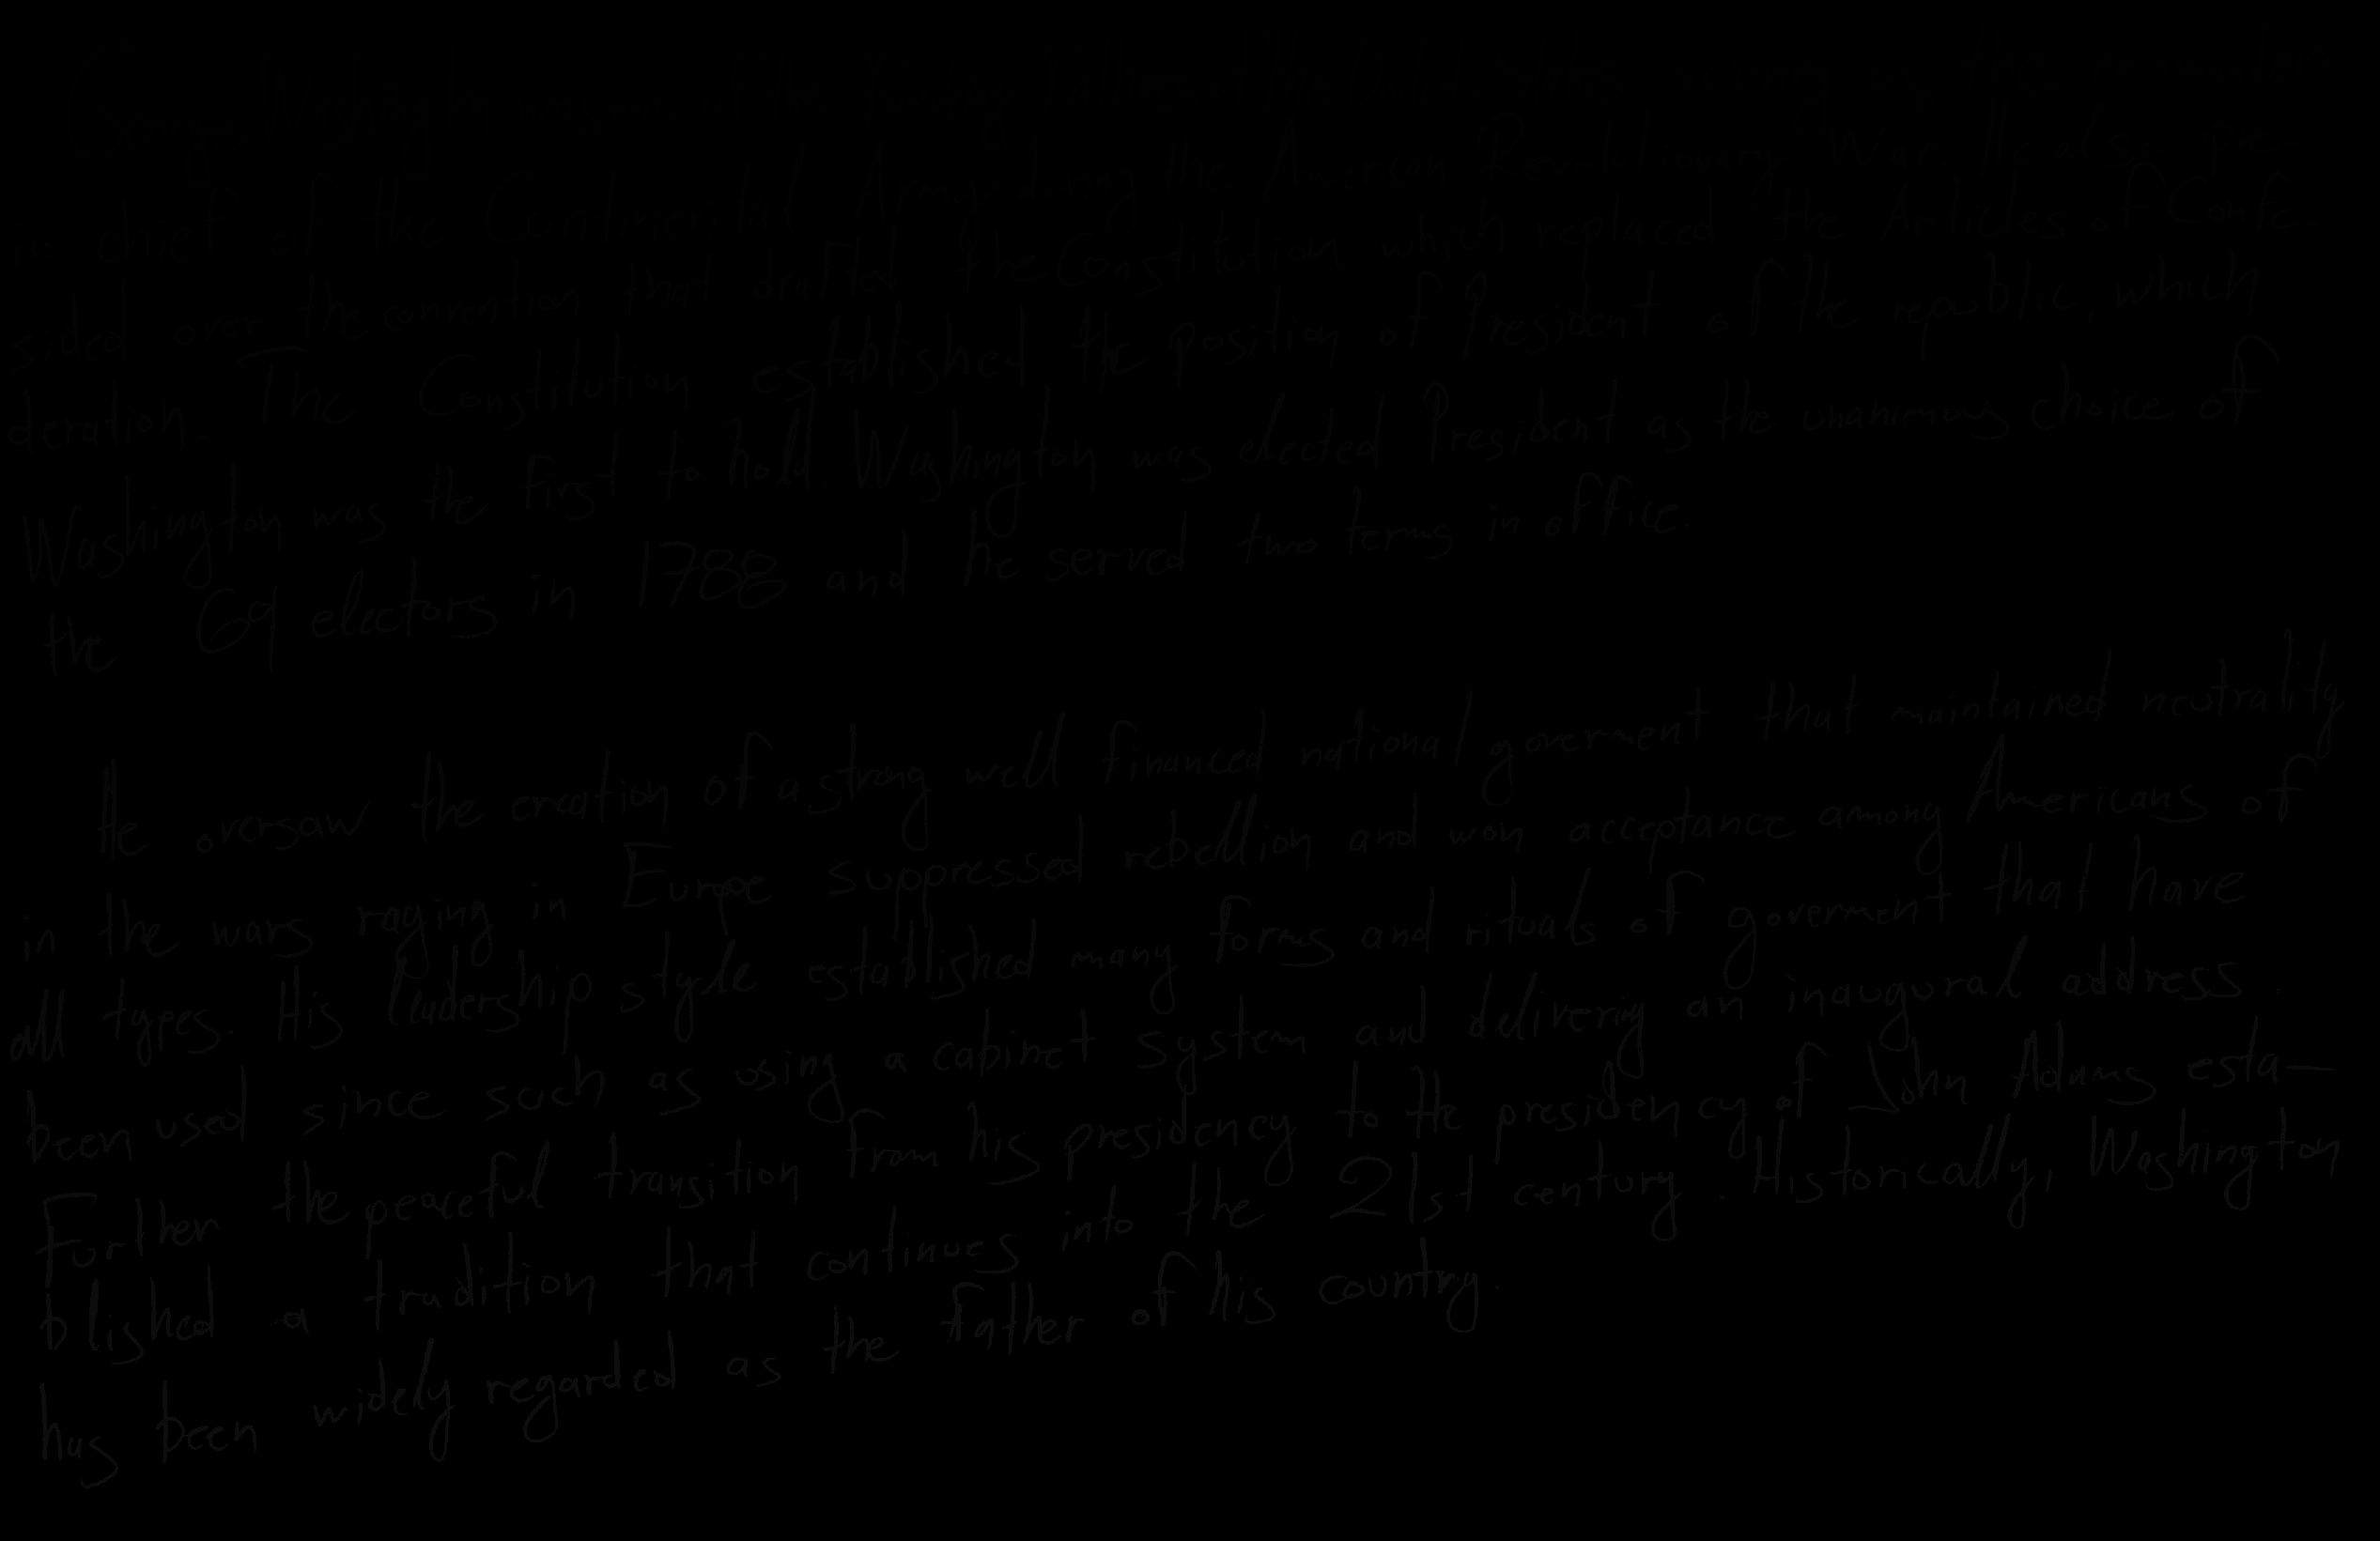 in chief of the Continental Army during the American Revolutionary War. He also pre-
sided over the convention that drafted the Constitution which replaced the Articles of Confe-
deration. The Constitution established the position of President of the republic, which
Washington was the first to hold. Washington was elected President as the unanimous choice of
the 69 electors in 1788 and he served two terms in office.
He oversaw the creation of a strong well financed national goverment that maintained neutrality
in the wars raging in Europe suppressed rebellion and won acceptance among Americans of
all types. His leadership style established many forms and rituals of goverment that have
been used since such as using a cabinet system and delivering an inaugural address.
Further the peaceful transition from his presidency to the presidency of John Adams esta-
blished a tradition that continues into the 21st century. Historically, Washington
has been widely regarded as the father of his country.